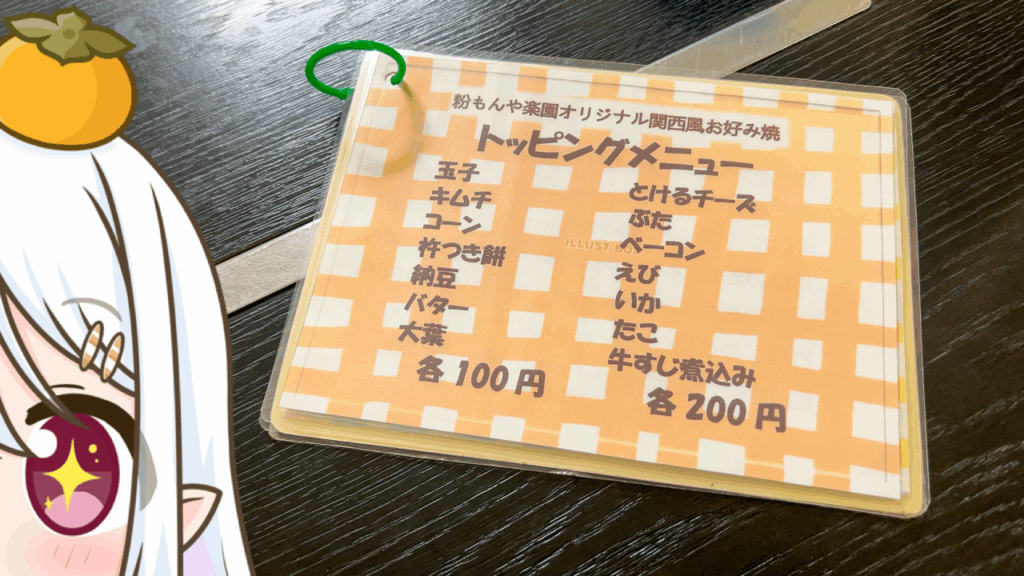 粉もんや楽園オリジナル関西風お好み焼
トッピングメニュー
玉子
キムチ
コーン
杵つき餅
納豆
バター
大葉
各100円
とけるチーズ
ぶた
ベーコン
えび
いか
たこ
牛すじ煮込み
各200円